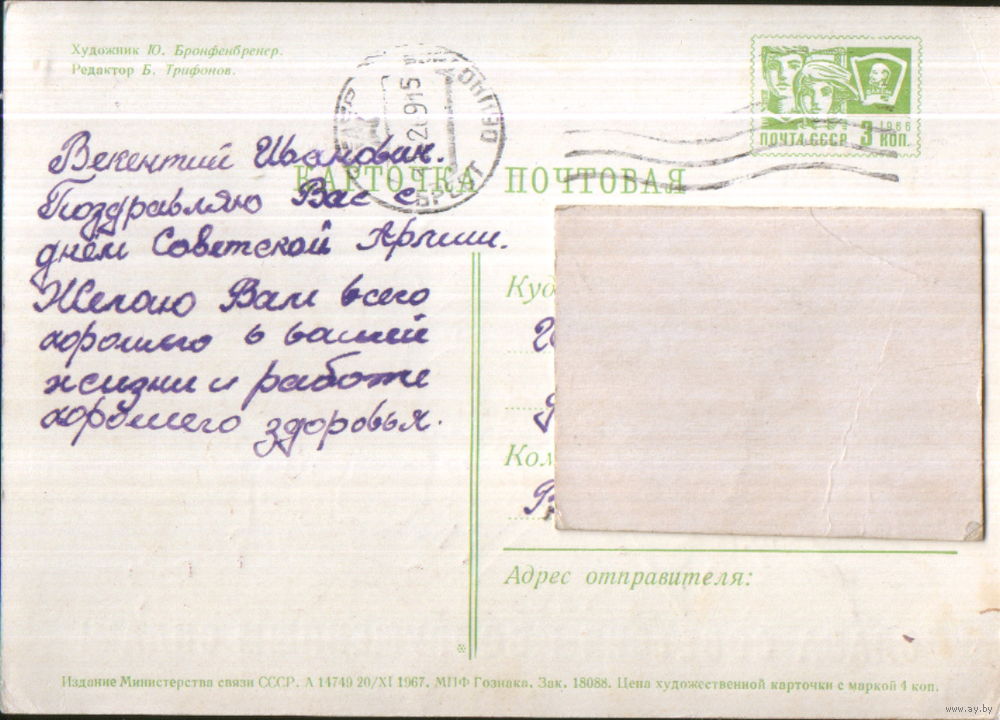 Художник Ю. Бронфенбренер.
Редактор Б. Трифонов.
ПОЧТА СССР 3 КОП.
1966
КАРТОЧКА ПОЧТОВАЯ
БРЕСТ
Векентий Иванович.
Поздравляю Вас с
днём Советской Армии.
Желаю Вам всего
хорошего в вашей
жизни и работе
хорошего здоровья.
Куд
Адрес отправителя:
Издание Министерства связи СССР. А 14749 20/XI 1967. МПФ Гознака. Зак. 18088. Цена художественной карточки с маркой 4 коп.
www.ay.by